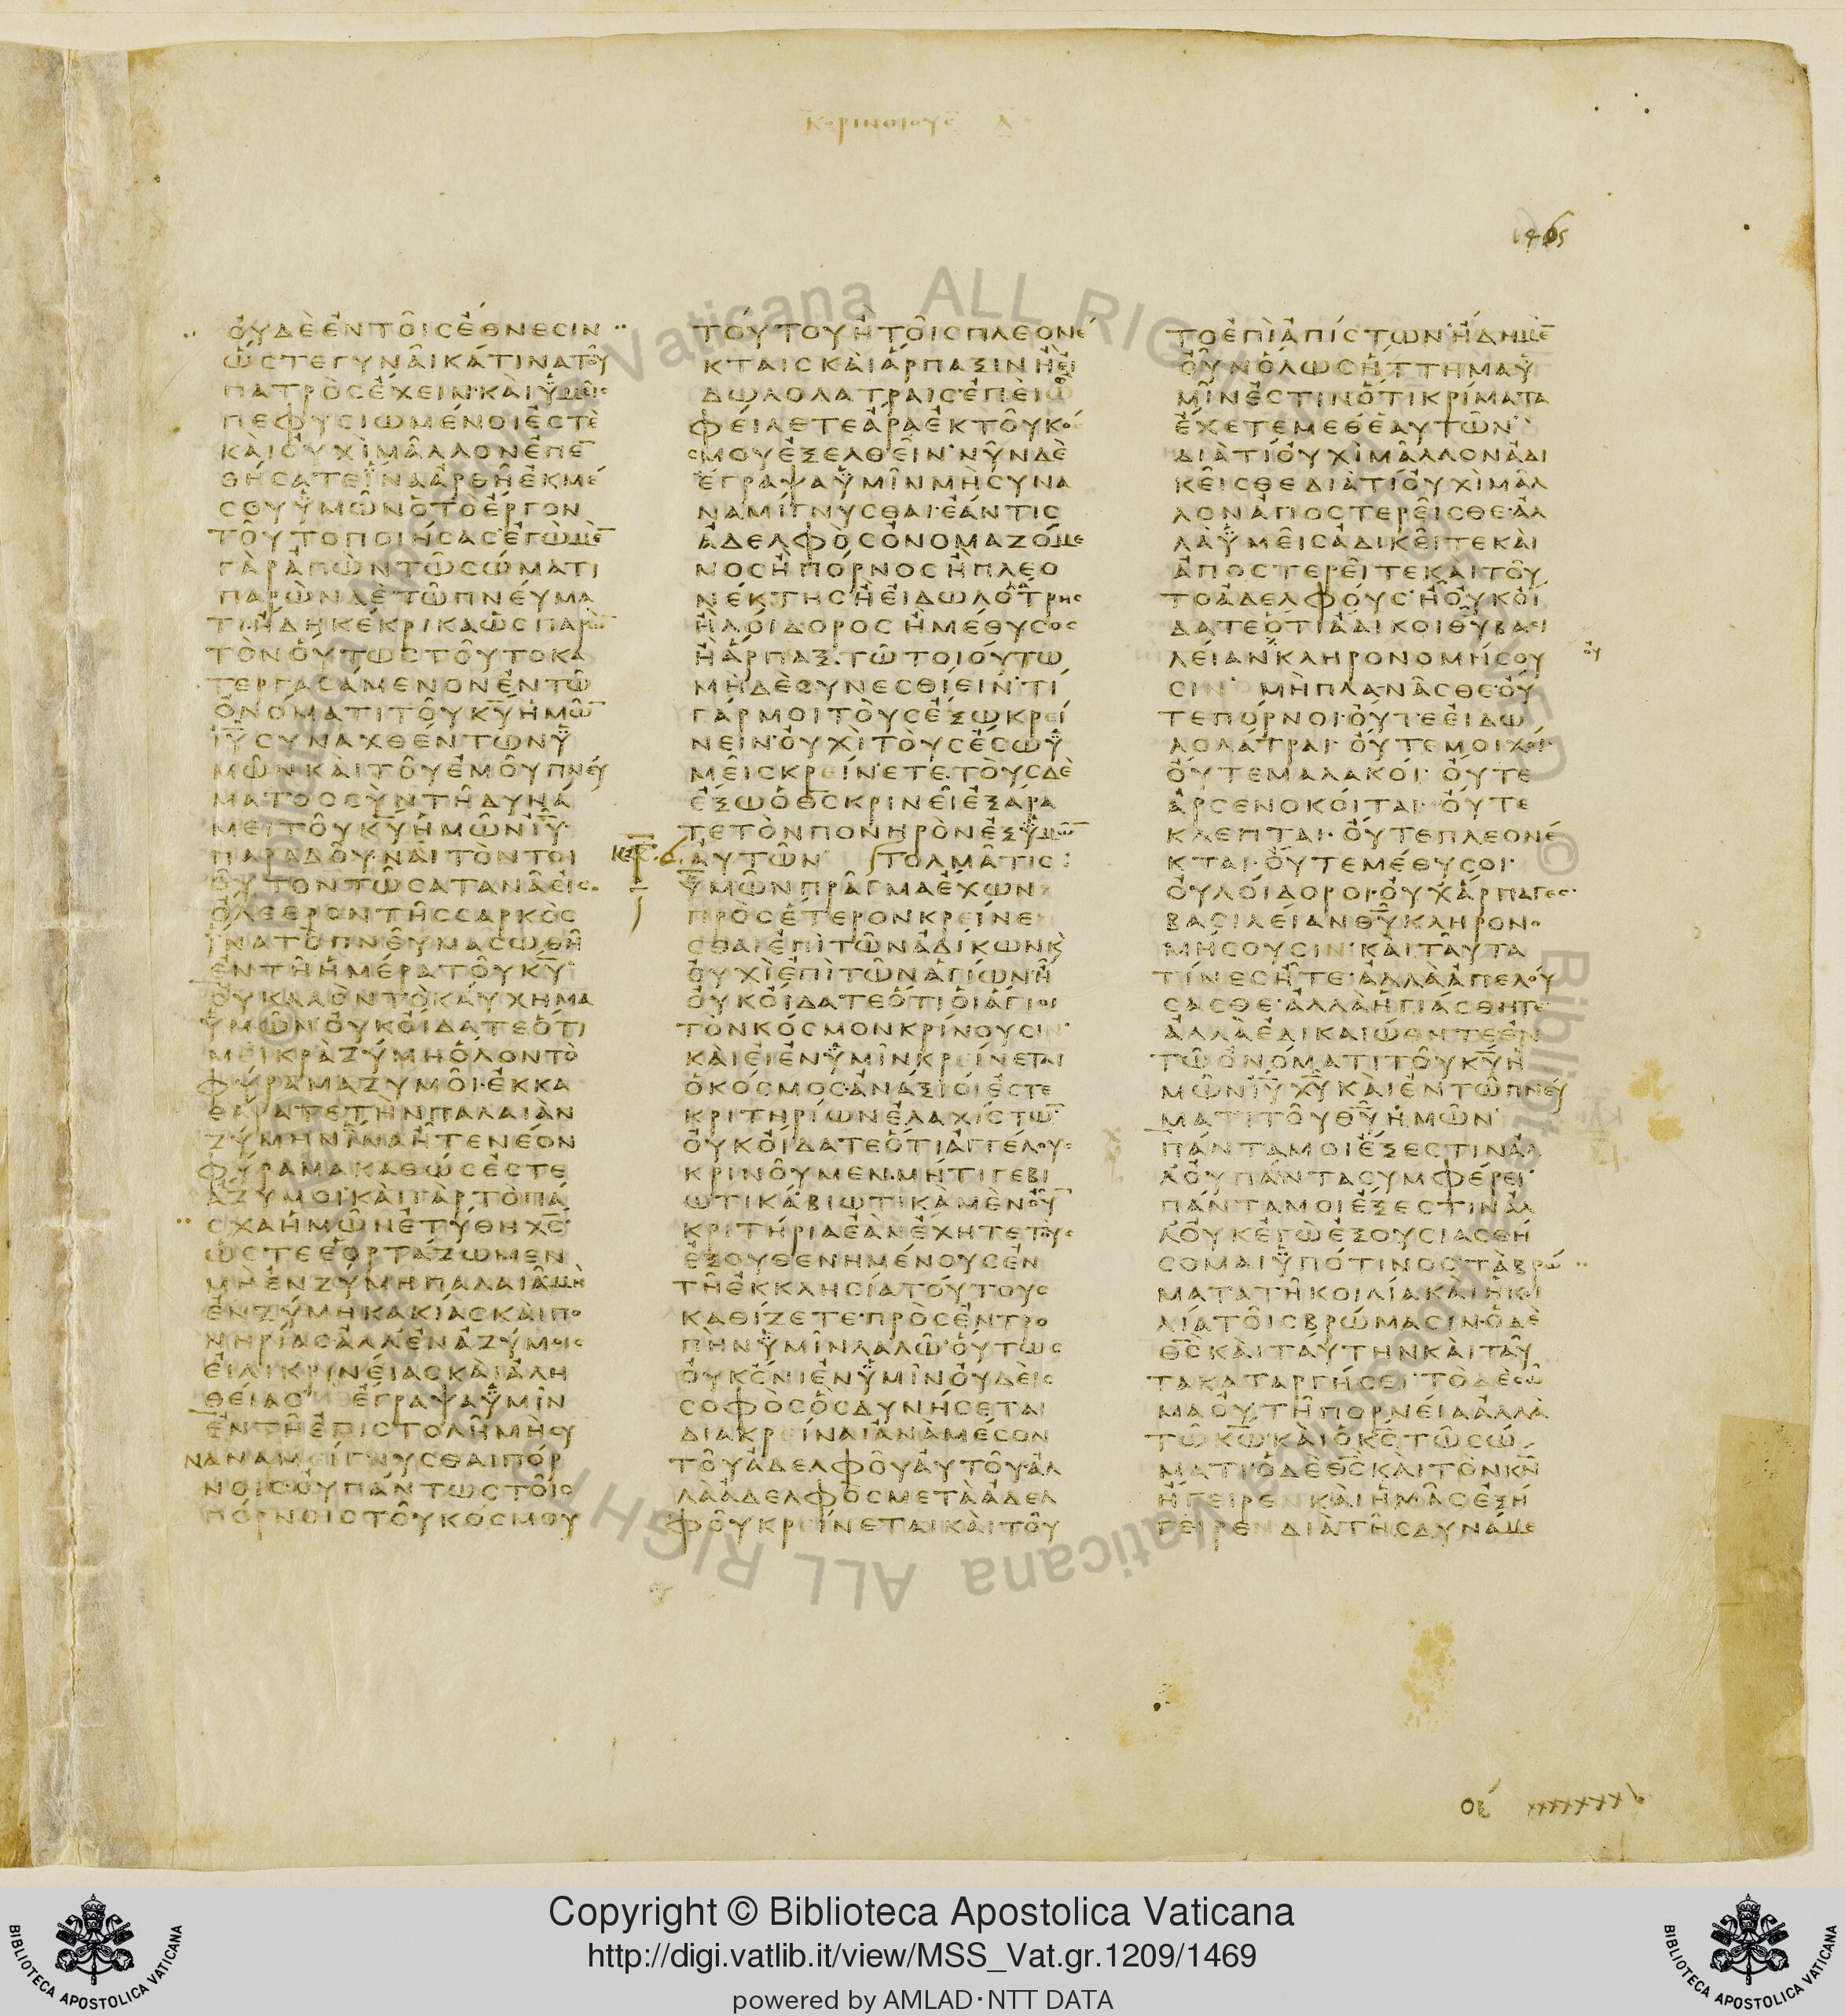 Κορινθιους Α
1465
ΟΥΔΕΕΝΤΟΙϹΕΘΝΕϹΙΝ
ΩϹΤΕΓΥΝΑΙΚΑΤΙΝΑΤΟΥ
ΠΑΤΡΟϹΕΧΕΙΝ·ΚΑΙΥΜΕΙϹ
ΠΕΦΥϹΙΩΜΕΝΟΙΕϹΤΕ
ΚΑΙΟΥΧΙΜΑΛΛΟΝΕΠΕ̅
ΘΗϹΑΤΕΪΝΑΑΡΘΗΕΚΜΕ
ϹΟΥΥΜΩΝΟΤΟΕΡΓΟΝ
ΤΟΥΤΟΠΟΙΗϹΑϹΕΓΩΜΕ̅
ΓΑΡΑΠΩΝΤΩϹΩΜΑΤΙ
ΠΑΡΩΝΔΕΤΩΠΝΕΥΜΑ
ΤΙΗΔΗΚΕΚΡΙΚΑΩϹΠΑΡΩ̅
ΤΟΝΟΥΤΩϹΤΟΥΤΟΚΑ
ΤΕΡΓΑϹΑΜΕΝΟΝΕΝΤΩ
ΟΝΟΜΑΤΙΤΟΥΚ̅Υ̅ΗΜΩ̅
Ι̅Υ̅ϹΥΝΑΧΘΕΝΤΩΝΫ
ΜΩΝΚΑΙΤΟΥΕΜΟΥΠΝΕΥ
ΜΑΤΟϹϹΥΝΤΗΔΥΝΑ
ΜΕΙΤΟΥΚ̅Υ̅ΗΜΩΝΙ̅Υ̅
ΠΑΡΑΔΟΥΝΑΙΤΟΝΤΟΙ
ΟΥΤΟΝΤΩϹΑΤΑΝΑΕΙϹ
ΟΛΕΘΡΟΝΤΗϹϹΑΡΚΟϹ
ΪΝΑΤΟΠΝΕΥΜΑϹΩΘΗ
ΕΝΤΗΗΜΕΡΑΤΟΥΚ̅Υ̅
ΟΥΚΑΛΟΝΤΟΚΑΥΧΗΜΑ
ΫΜΩΝΟΥΚΟΙΔΑΤΕΟΤΙ
ΜΕΙΚΡΑΖΥΜΗΟΛΟΝΤΟ
ΦΥΡΑΜΑΖΥΜΟΙ·ΕΚΚΑ
ΘΑΡΑΤΕΤΗΝΠΑΛΑΙΑΝ
ΖΥΜΗΝΪΝΑΗΤΕΝΕΟΝ
ΦΥΡΑΜΑΚΑΘΩϹΕϹΤΕ
ΑΖΥΜΟΙ·ΚΑΙΓΑΡΤΟΠΑ
ϹΧΑΗΜΩΝΕΤΥΘΗΧ̅Ϲ̅
ΩϹΤΕΕΟΡΤΑΖΩΜΕΝ
ΜΗΕΝΖΥΜΗΠΑΛΑΙΑΜΗ
ΕΝΖΥΜΗΚΑΚΙΑϹΚΑΙΠΟ
ΝΗΡΙΑϹΑΛΛΕΝΑΖΥΜΟΙϹ
ΕΙΛΙΚΡΙΝΕΙΑϹΚΑΙΑΛΗ
ΘΕΙΑϹ ΕΓΡΑΨΑΫΜΙΝ
ΕΝΤΗΕΠΙϹΤΟΛΗΜΗϹΥ
ΝΑΝΑΜΕΙΓΝΥϹΘΑΙΠΟΡ
ΝΟΙϹ·ΟΥΠΑΝΤΩϹΤΟΙϹ
ΠΟΡΝΟΙϹΤΟΥΚΟϹΜΟΥ
ΤΟΥΤΟΥΗΤΟΙϹΠΛΕΟΝΕ
ΚΤΑΙϹΚΑΙΑΡΠΑΞΙΝΗΕΙ
ΔΩΛΟΛΑΤΡΑΙϹ·ΕΠΕΙΩ
ΦΕΙΛΕΤΕΑΡΑΕΚΤΟΥΚΟ
ϹΜΟΥΕΞΕΛΘΕΙΝ·ΝΥΝΔΕ
ΕΓΡΑΨΑΫΜΙΝΜΗϹΥΝΑ
ΝΑΜΙΓΝΥϹΘΑΙ·ΕΑΝΤΙϹ
ΑΔΕΛΦΟϹΟΝΟΜΑΖΟΜΕ
ΝΟϹΗΠΟΡΝΟϹΗΠΛΕΟ
ΝΕΚΤΗϹΗΕΙΔΩΛΟΛΑΤΡΗϹ
ΗΛΟΙΔΟΡΟϹΗΜΕΘΥϹΟϹ
ΗΑΡΠΑΞ·ΤΩΤΟΙΟΥΤΩ
ΜΗΔΕϹΥΝΕϹΘΙΕΙΝ·ΤΙ
ΓΑΡΜΟΙΤΟΥϹΕΞΩΚΡΕΙ
ΝΕΙΝ·ΟΥΧΙΤΟΥϹΕϹΩΫ
ΜΕΙϹΚΡΕΙΝΕΤΕ·ΤΟΥϹΔΕ
ΕΞΩΟΘ̅Ϲ̅ΚΡΙΝΕΙΕΞΑΡΑ
ΤΕΤΟΝΠΟΝΗΡΟΝΕΞΫΜΩ̅
ΑΥΤΩΝ ΤΟΛΜΑΤΙϹ
ΫΜΩΝΠΡΑΓΜΑΕΧΩΝ
ΠΡΟϹΕΤΕΡΟΝΚΡΕΙΝΕ
ϹΘΑΙΕΠΙΤΩΝΑΔΙΚΩΝΚ
ΟΥΧΙΕΠΙΤΩΝΑΓΙΩΝ·Η
ΟΥΚΟΙΔΑΤΕΟΤΙΟΙΑΓΙΟΙ
ΤΟΝΚΟϹΜΟΝΚΡΙΝΟΥϹΙΝ
ΚΑΙΕΙΕΝΫΜΙΝΚΡΕΙΝΕΤΑΙ
ΟΚΟϹΜΟϹ·ΑΝΑΞΙΟΙΕϹΤΕ
ΚΡΙΤΗΡΙΩΝΕΛΑΧΙϹΤΩ̅
ΟΥΚΟΙΔΑΤΕΟΤΙΑΓΓΕΛΟΥϹ
ΚΡΙΝΟΥΜΕΝ·ΜΗΤΙΓΕΒΙ
ΩΤΙΚΑ·ΒΙΩΤΙΚΑΜΕΝΟΥ̅
ΚΡΙΤΗΡΙΑΕΑΝΕΧΗΤΕΤΟΥϹ
ΕΞΟΥΘΕΝΗΜΕΝΟΥϹΕΝ
ΤΗΕΚΚΛΗϹΙΑΤΟΥΤΟΥϹ
ΚΑΘΙΖΕΤΕ·ΠΡΟϹΕΝΤΡΟ
ΠΗΝΫΜΙΝΛΑΛΩ·ΟΥΤΩϹ
ΟΥΚΕΝΙΕΝΫΜΙΝΟΥΔΕΙϹ
ϹΟΦΟϹΟϹΔΥΝΗϹΕΤΑΙ
ΔΙΑΚΡΕΙΝΑΙΑΝΑΜΕϹΟΝ
ΤΟΥΑΔΕΛΦΟΥΑΥΤΟΥ·ΑΛ
ΛΑΑΔΕΛΦΟϹΜΕΤΑΑΔΕΛ
ΦΟΥΚΡΕΙΝΕΤΑΙΚΑΙΤΟΥ
ΤΟΕΠΙΑΠΙϹΤΩΝ·ΗΔΗΜΕ̅
ΟΥΝΟΛΩϹΗΤΤΗΜΑΫ
ΜΙΝΕϹΤΙΝΟΤΙΚΡΙΜΑΤΑ
ΕΧΕΤΕΜΕΘΕΑΥΤΩΝ
ΔΙΑΤΙΟΥΧΙΜΑΛΛΟΝΑΔΙ
ΚΕΙϹΘΕΔΙΑΤΙΟΥΧΙΜΑΛ
ΛΟΝΑΠΟϹΤΕΡΕΙϹΘΕ·ΑΛ
ΛΑΫΜΕΙϹΑΔΙΚΕΙΤΕΚΑΙ
ΑΠΟϹΤΕΡΕΙΤΕΚΑΙΤΟΥ
ΤΟΑΔΕΛΦΟΥϹ·ΗΟΥΚΟΙ
ΔΑΤΕΟΤΙΑΔΙΚΟΙΘ̅Υ̅ΒΑϹΙ
ΛΕΙΑΝΚΛΗΡΟΝΟΜΗϹΟΥ
ϹΙΝ ΜΗΠΛΑΝΑϹΘΕ·ΟΥ
ΤΕΠΟΡΝΟΙ·ΟΥΤΕΕΙΔΩ
ΛΟΛΑΤΡΑΙ·ΟΥΤΕΜΟΙΧΟΙ·
ΟΥΤΕΜΑΛΑΚΟΙ·ΟΥΤΕ
ΑΡϹΕΝΟΚΟΙΤΑΙ·ΟΥΤΕ
ΚΛΕΠΤΑΙ·ΟΥΤΕΠΛΕΟΝΕ
ΚΤΑΙ·ΟΥΤΕΜΕΘΥϹΟΙ·
ΟΥΛΟΙΔΟΡΟΙ·ΟΥΧΑΡΠΑΓΕϹ·
ΒΑϹΙΛΕΙΑΝΘ̅Υ̅ΚΛΗΡΟΝΟ
ΜΗϹΟΥϹΙΝ·ΚΑΙΤΑΥΤΑ
ΤΙΝΕϹΗΤΕ·ΑΛΛΑΑΠΕΛΟΥ
ϹΑϹΘΕ·ΑΛΛΑΗΓΙΑϹΘΗΤΕ
ΑΛΛΑΕΔΙΚΑΙΩΘΗΤΕΕΝ
ΤΩΟΝΟΜΑΤΙΤΟΥΚ̅Υ̅Η
ΜΩΝΙ̅Υ̅Χ̅Υ̅ΚΑΙΕΝΤΩΠΝΕΥ
ΜΑΤΙΤΟΥΘ̅Υ̅ΗΜΩΝ
ΠΑΝΤΑΜΟΙΕΞΕϹΤΙΝΑΛ
ΛΟΥΠΑΝΤΑϹΥΜΦΕΡΕΙ
ΠΑΝΤΑΜΟΙΕΞΕϹΤΙΝΑΛ
ΛΟΥΚΕΓΩΕΞΟΥϹΙΑϹΘΗ
ϹΟΜΑΙΫΠΟΤΙΝΟϹΤΑΒΡΩ
ΜΑΤΑΤΗΚΟΙΛΙΑΚΑΙΗΚΟΙ
ΛΙΑΤΟΙϹΒΡΩΜΑϹΙΝ·ΟΔΕ
Θ̅Ϲ̅ΚΑΙΤΑΥΤΗΝΚΑΙΤΑΥ
ΤΑΚΑΤΑΡΓΗϹΕΙ·ΤΟΔΕϹΩ
ΜΑΟΥΤΗΠΟΡΝΕΙΑΑΛΛΑ
ΤΩΚ̅Ω̅·ΚΑΙΟΚ̅Ϲ̅ΤΩϹΩ
ΜΑΤΙ·ΟΔΕΘ̅Ϲ̅ΚΑΙΤΟΝΚ̅Ν̅
ΗΓΕΙΡΕΝΚΑΙΗΜΑϹΕΞΗ
ΓΕΙΡΕΝΔΙΑΤΗϹΔΥΝΑΜΕ
Copyright © Biblioteca Apostolica Vaticana
http://digi.vatlib.it/view/MSS_Vat.gr.1209/1469
powered by AMLAD·NTT DATA
BIBLIOTECA APOSTOLICA VATICANA
BIBLIOTECA APOSTOLICA VATICANA